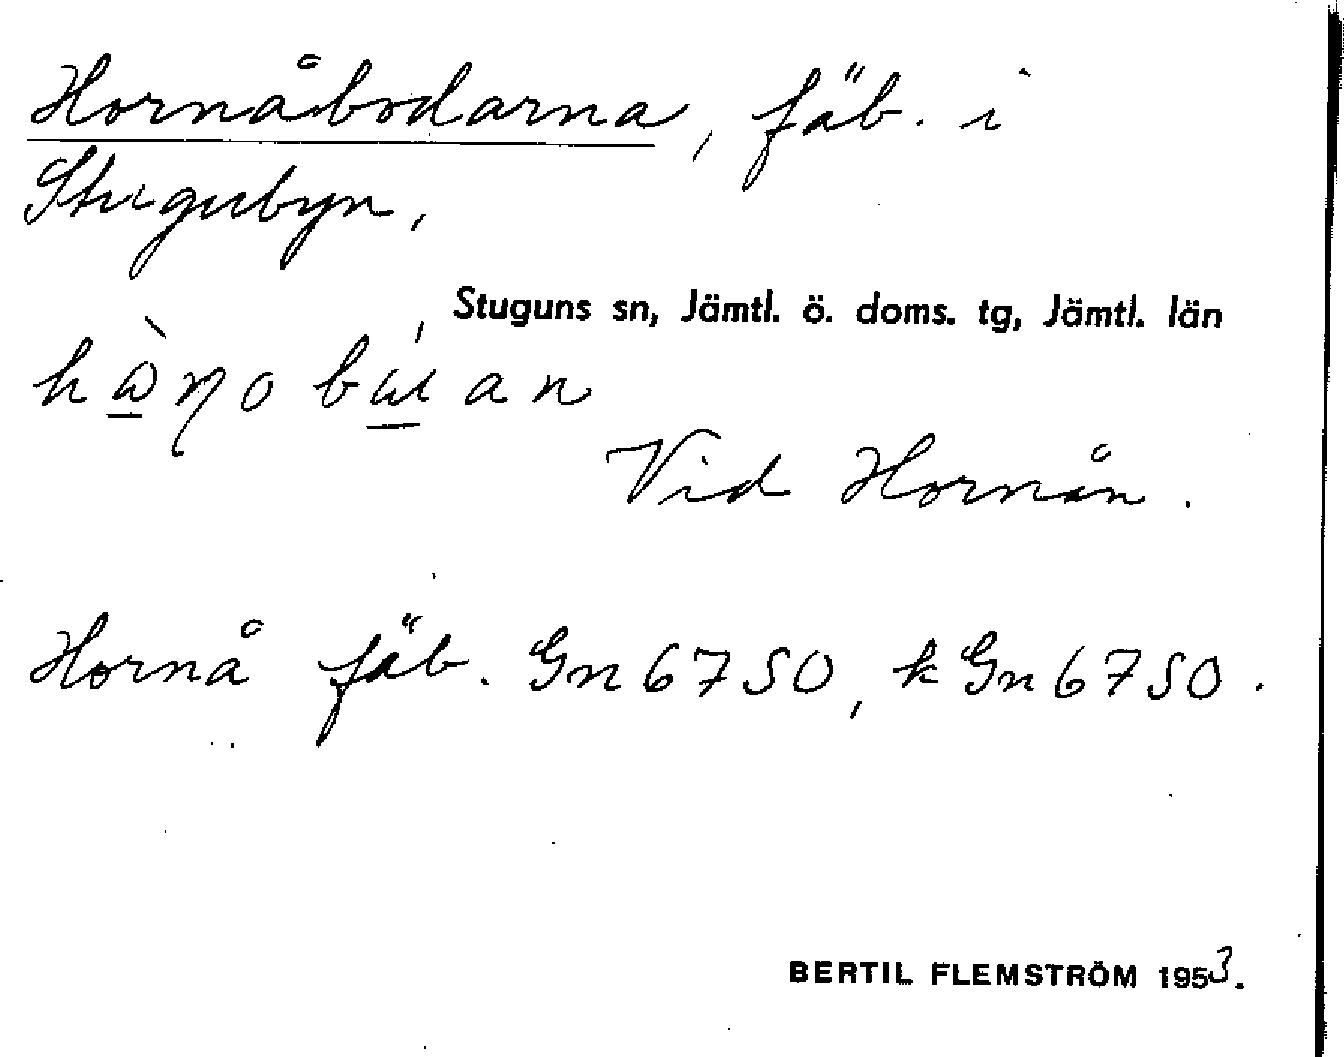 Hornåbodarna, fäb. i
Stugubyn,
Stuguns sn, Jämtl. ö. doms. tg, Jämtl. län
Vid Hornån.
Hornå fäb. Gn 6750, k Gn 6750.
BERTIL FLEMSTRÖM 1953.